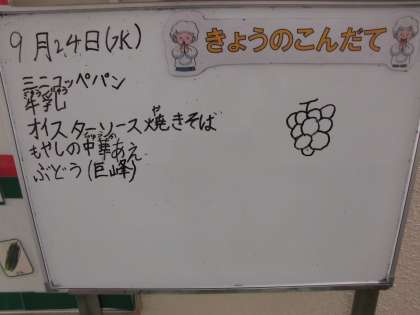 きょうのこんだて
9月24日(水)
ミニコッペパン
牛乳
オイスターソース焼きそば
もやしの中華あえ
ぶどう(巨峰)